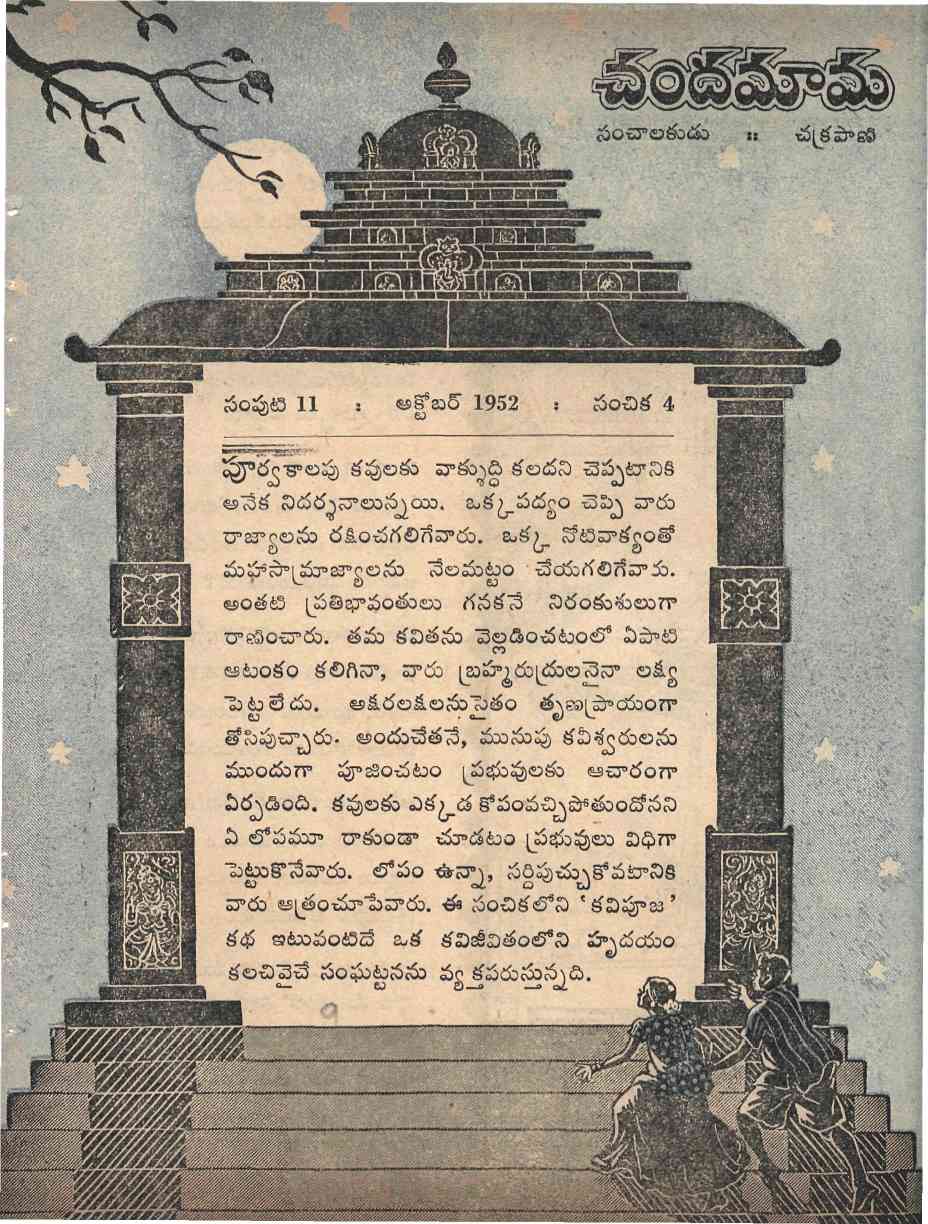 చందమామ
సంచాలకుడు :: చక్రపాణి
సంపుటి 11 : అక్టోబర్ 1952 : సంచిక 4
పూర్వకాలపు కవులకు వాక్శుద్ధి కలదని చెప్పటానికి
అనేక నిదర్శనాలున్నయి. ఒక్కపద్యం చెప్పి వారు
రాజ్యాలను రక్షించగలిగేవారు. ఒక్క నోటివాక్యంతో
మహాసామ్రాజ్యాలను నేలమట్టం చేయగలిగేవారు.
అంతటి ప్రతిభావంతులు గనకనే నిరంకుశులుగా
రాణించారు. తమ కవితను వెల్లడించటంలో ఏపాటి
ఆటంకం కలిగినా, వారు బ్రహ్మరుద్రులనైనా లక్ష్య
పెట్టలేదు. అక్షరలక్షలనుసైతం తృణప్రాయంగా
తోసిపుచ్చారు. అందుచేతనే, మునుపు కవీశ్వరులను
ముందుగా పూజించటం ప్రభువులకు ఆచారంగా
ఏర్పడింది. కవులకు ఎక్కడ కోపంవచ్చిపోతుందోనని
ఏ లోపమూ రాకుండా చూడటం ప్రభువులు విధిగా
పెట్టుకొనేవారు. లోపం ఉన్నా, సర్దిపుచ్చుకోవటానికి
వారు ఆత్రంచూపేవారు. ఈ సంచికలోని ‘కవిపూజ’
కథ ఇటువంటిదే ఒక కవిజీవితంలోని హృదయం
కలచివైచే సంఘట్టనను వ్యక్తపరుస్తున్నది.
9